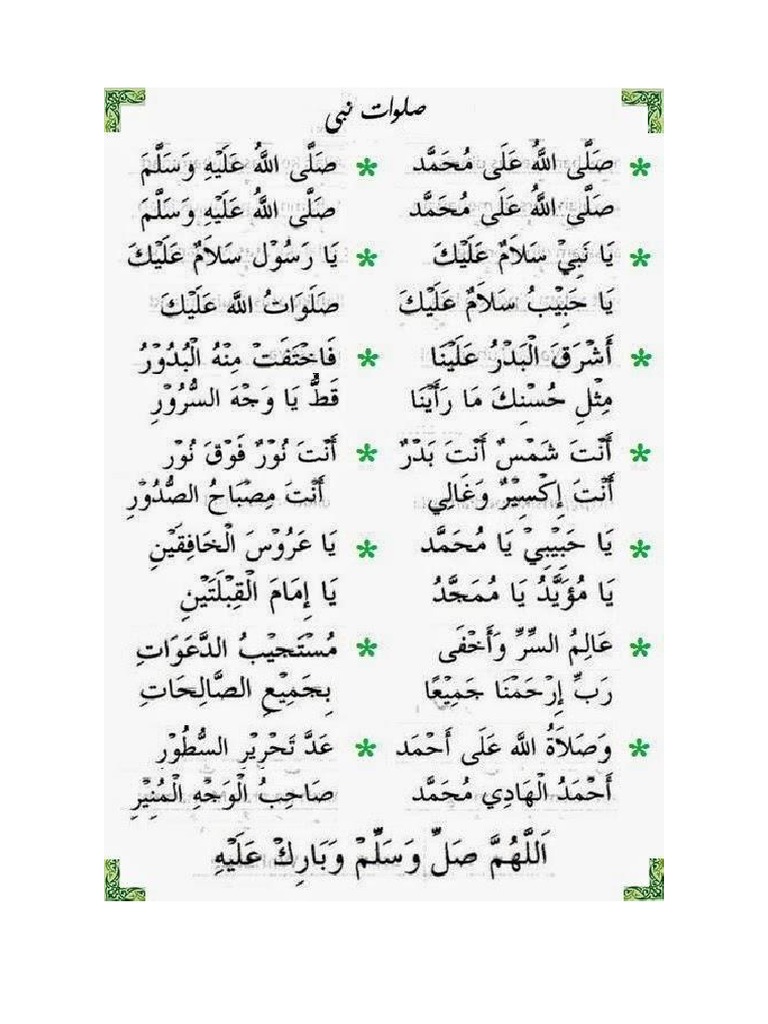 صلوات نبى
صَلَّى اللهُ عَلَى مُحَمَّد * صَلَّى اللهُ عَلَيْهِ وَسَلَّمَ
صَلَّى اللهُ عَلَى مُحَمَّد صَلَّى اللهُ عَلَيْهِ وَسَلَّمَ
يَا نَبِيْ سَلَامٌ عَلَيْكَ * يَا رَسُوْل سَلَامٌ عَلَيْكَ
يَا حَبِيْبُ سَلَامٌ عَلَيْكَ صَلَوَاتُ الله عَلَيْكَ
أَشْرَقَ الْبَدْرُ عَلَيْنَا * فَاخْتَفَتْ مِنْهُ الْبُدُوْرُ
مِثْلِ حُسْنِكَ مَا رَأَيْنَا قَطُّ يَا وَجْهَ السُّرُوْرِ
أَنْتَ شَمْسٌ أَنْتَ بَدْرٌ * أَنْتَ نُوْرٌ فَوْقَ نُوْر
أَنْتَ إِكْسِيْرٌ وَغَالِي أَنْتَ مِصْبَاحُ الصُّدُوْرِ
يَا حَبِيْبِيْ يَا مُحَمَّد * يَا عَرُوْسَ الْخَافِقَيْنِ
يَا مُؤَيَّدُ يَا مُمَجَّدُ يَا إِمَامَ الْقِبْلَتَيْنِ
عَالِمُ السِّرِّ وَأَخْفَى * مُسْتَجِيْبُ الدَّعَوَاتِ
رَبِّ إِرْحَمْنَا جَمِيْعًا بِجَمِيْعِ الصَّالِحَاتِ
وَصَلَاةُ الله عَلَى أَحْمَد * عَدَّ تَحْرِيْرِ السُّطُوْر
أَحْمَدُ الْهَادِي مُحَمَّد صَاحِبُ الْوَجْهِ الْمُنِيْرِ
اَللَّهُمَّ صَلِّ وَسَلِّمْ وَبَارِكْ عَلَيْهِ